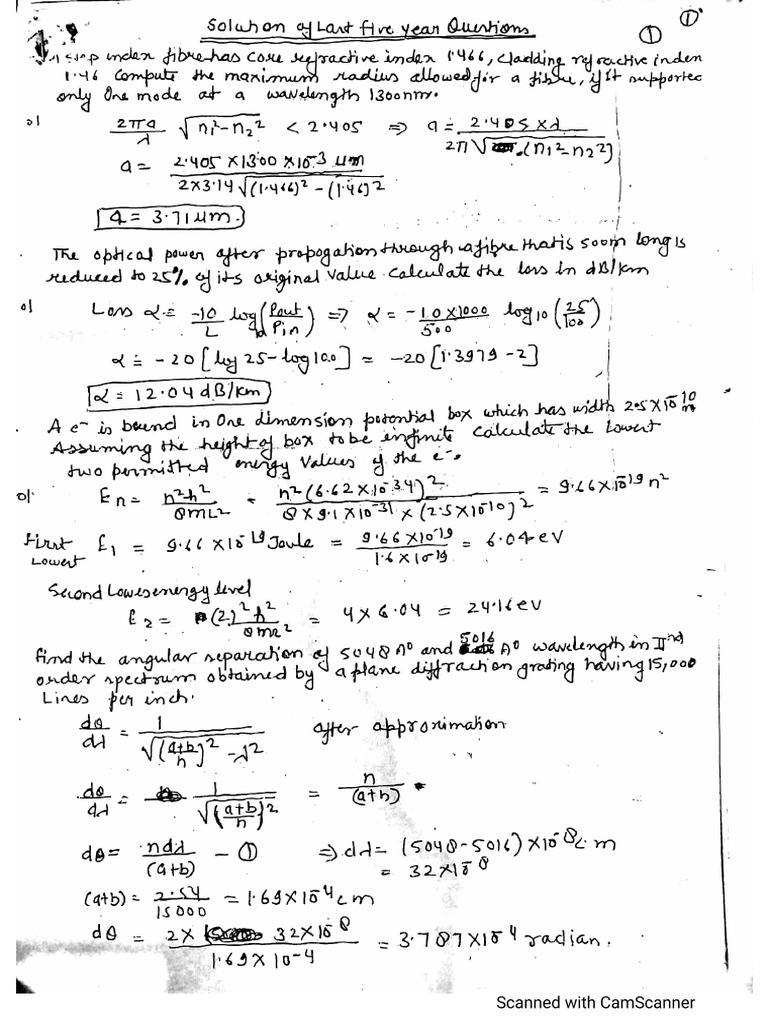 Solution of Last five year Questions
① ①
A step index fibre has core refractive index 1.466, cladding refractive index
1.46 compute the maximum radius allowed for a fibre, if it supported
only one mode at a wavelength 1300nm.
2πa/λ √n₁²-n₂² < 2.405 ⇒ a = 2.405 × λ / 2π√(n₁²-n₂²)
a = 2.405 × 1300 × 10⁻³ μm / 2×3.14 √(1.466)² - (1.46)²
a = 3.71 μm.
The optical power after propogation through a fibre that is 500m long is
reduced to 25% of its original value calculate the loss in dB/km
Loss α = -10/L log(Pout/Pin) ⇒ α = -10×1000/500 log10 (25/100)
α = -20 [log 25 - log 100] = -20 [1.3979 - 2]
α = 12.04 dB/km
A e⁻ is bound in one dimension potential box which has width 2.5×10⁻¹⁰ m
Assuming the height of box to be infinite calculate the Lowest
two permitted energy values of the e⁻.
En = n²h²/8mL² = n²(6.62×10⁻³⁴)² / 8×9.1×10⁻³¹×(2.5×10⁻¹⁰)² = 9.66×10⁻¹⁹ n²
First Lowest E₁ = 9.66×10⁻¹⁹ Joule = 9.66×10⁻¹⁹/1.6×10⁻¹⁹ = 6.04 eV
Second Lowest energy level
E₂ = (2)²h²/8ml² = 4×6.04 = 24.16 eV
find the angular separation of 5048 A° and 5016 A° wavelength in IInd
order spectrum obtained by a plane diffraction grating having 15,000
Lines per inch.
dθ/dλ = 1/√((a+b)/n)² - λ² after approximation
dθ/dλ = 1/√((a+b)/n)² = n/(a+b)
dθ = ndλ/(a+b) - ① ⇒ dλ = (5048-5016)×10⁻⁸ cm
= 32×10⁻⁸
(a+b) = 2.54/15000 = 1.69×10⁻⁴ cm
dθ = 2× 32×10⁻⁸ / 1.69×10⁻⁴ = 3.787×10⁻⁴ radian.
Scanned with CamScanner